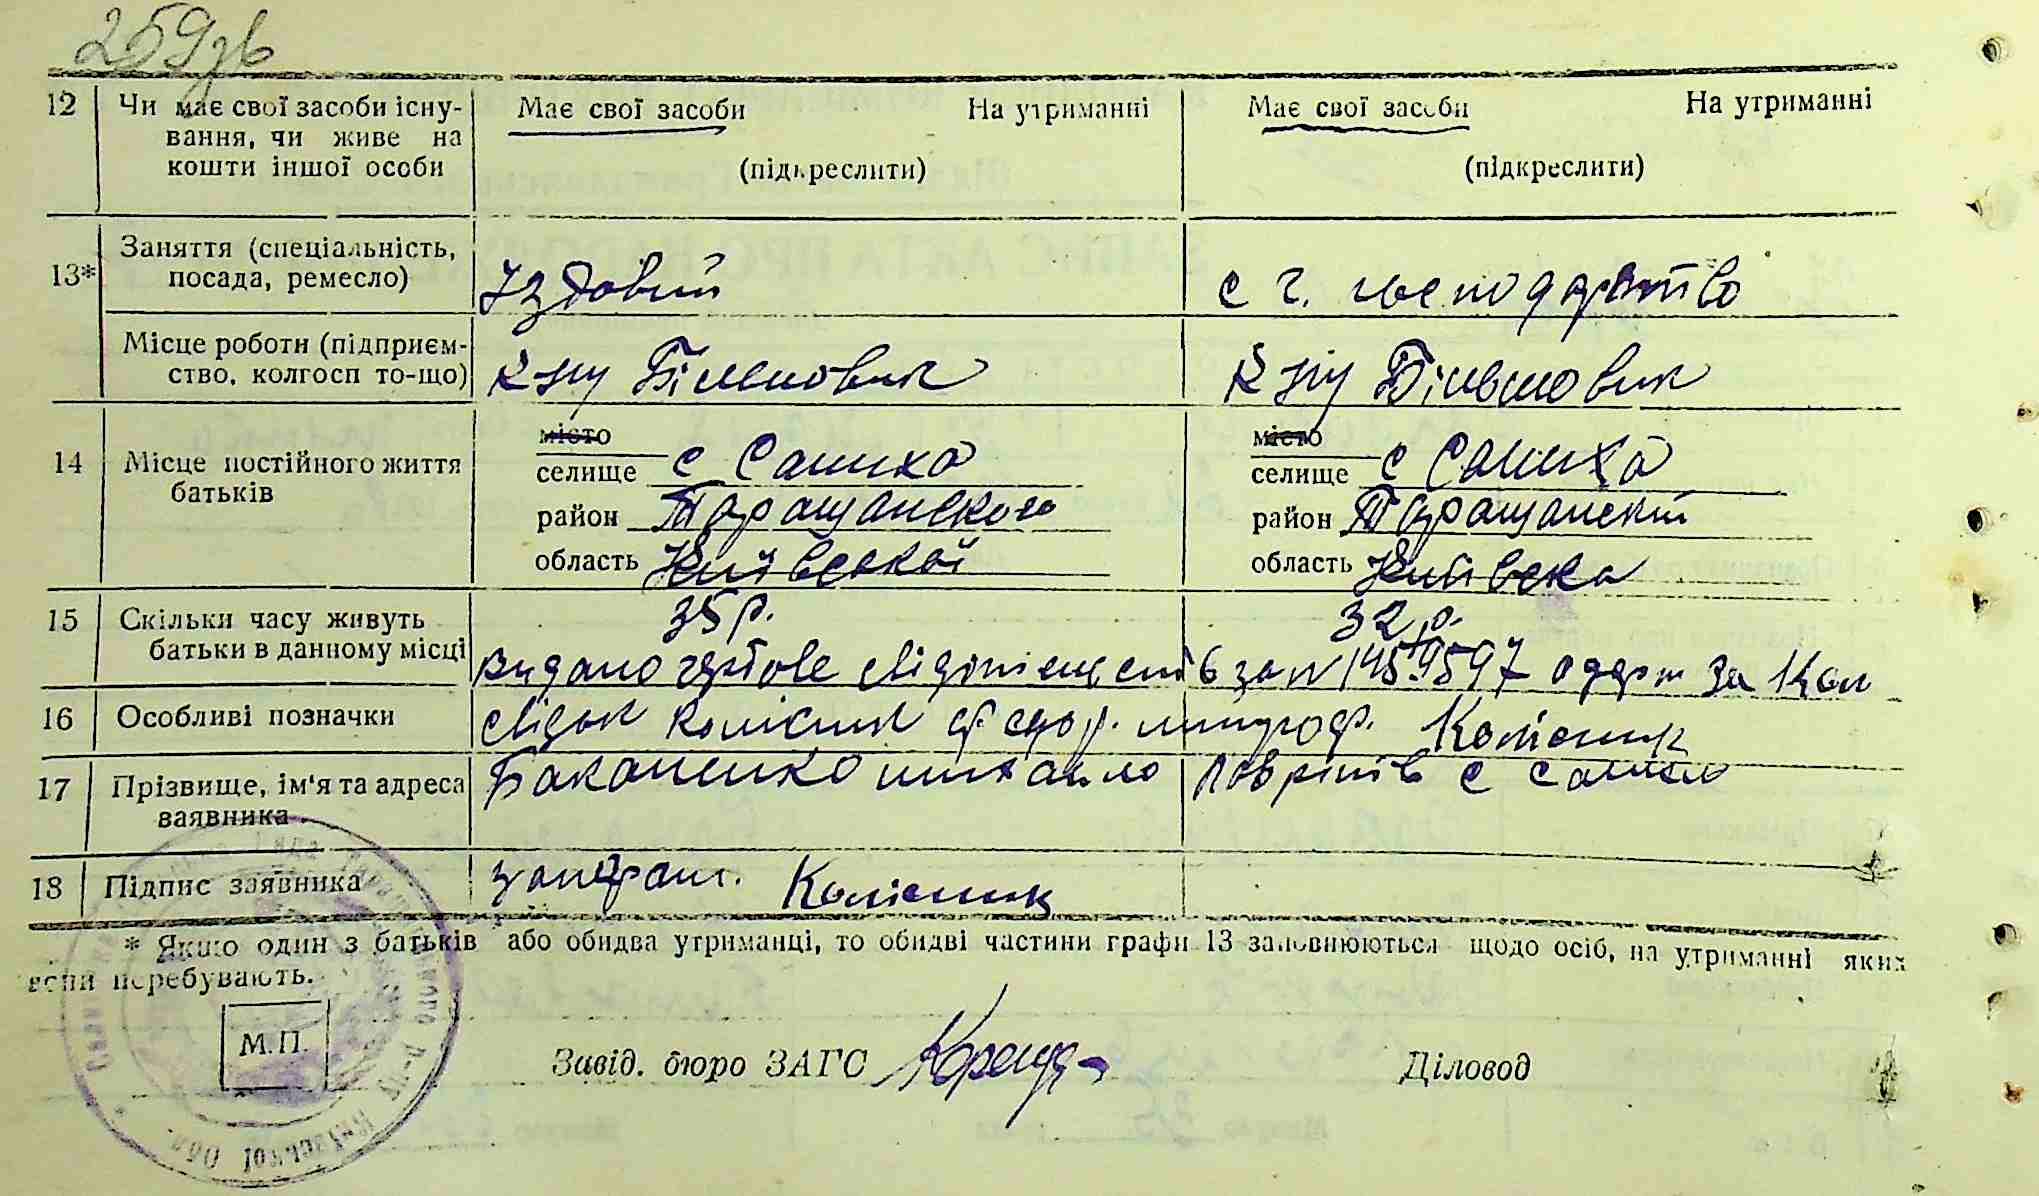 259зв
12 Чи має свої засоби існу- Має свої засоби На утриманні Має свої засоби На утриманні
вання, чи живе на
кошти іншої особи (підкреслити) (підкреслити)
13* Заняття (спеціальність,
посада, ремесло) Їздовий с г. господарство
Місце роботи (підприєм-
ство, колгосп то-що) Більшовик Більшовик
місто місто
14 Місце постійного життя селище с Саниха селище с Саниха
батьків район Таращанского район Таращанский
область Київської область Київска
15 Скільки часу живуть 35 р. 32 р.
батьки в данному місці
видано за № 1459597 за
16 Особливі позначки свідок Колісник Колісник
17 Прізвище, ім'я та адреса Баканенко михайло с Саниха
заявника
18 Підпис заявника Колісник
* Якщо один з батьків або обидва утриманці, то обидві частини графи 13 заповнюються щодо осіб, на утриманні яких
вони перебувають.
М.П.
Завід. бюро ЗАГС Діловод
Київської Обл.